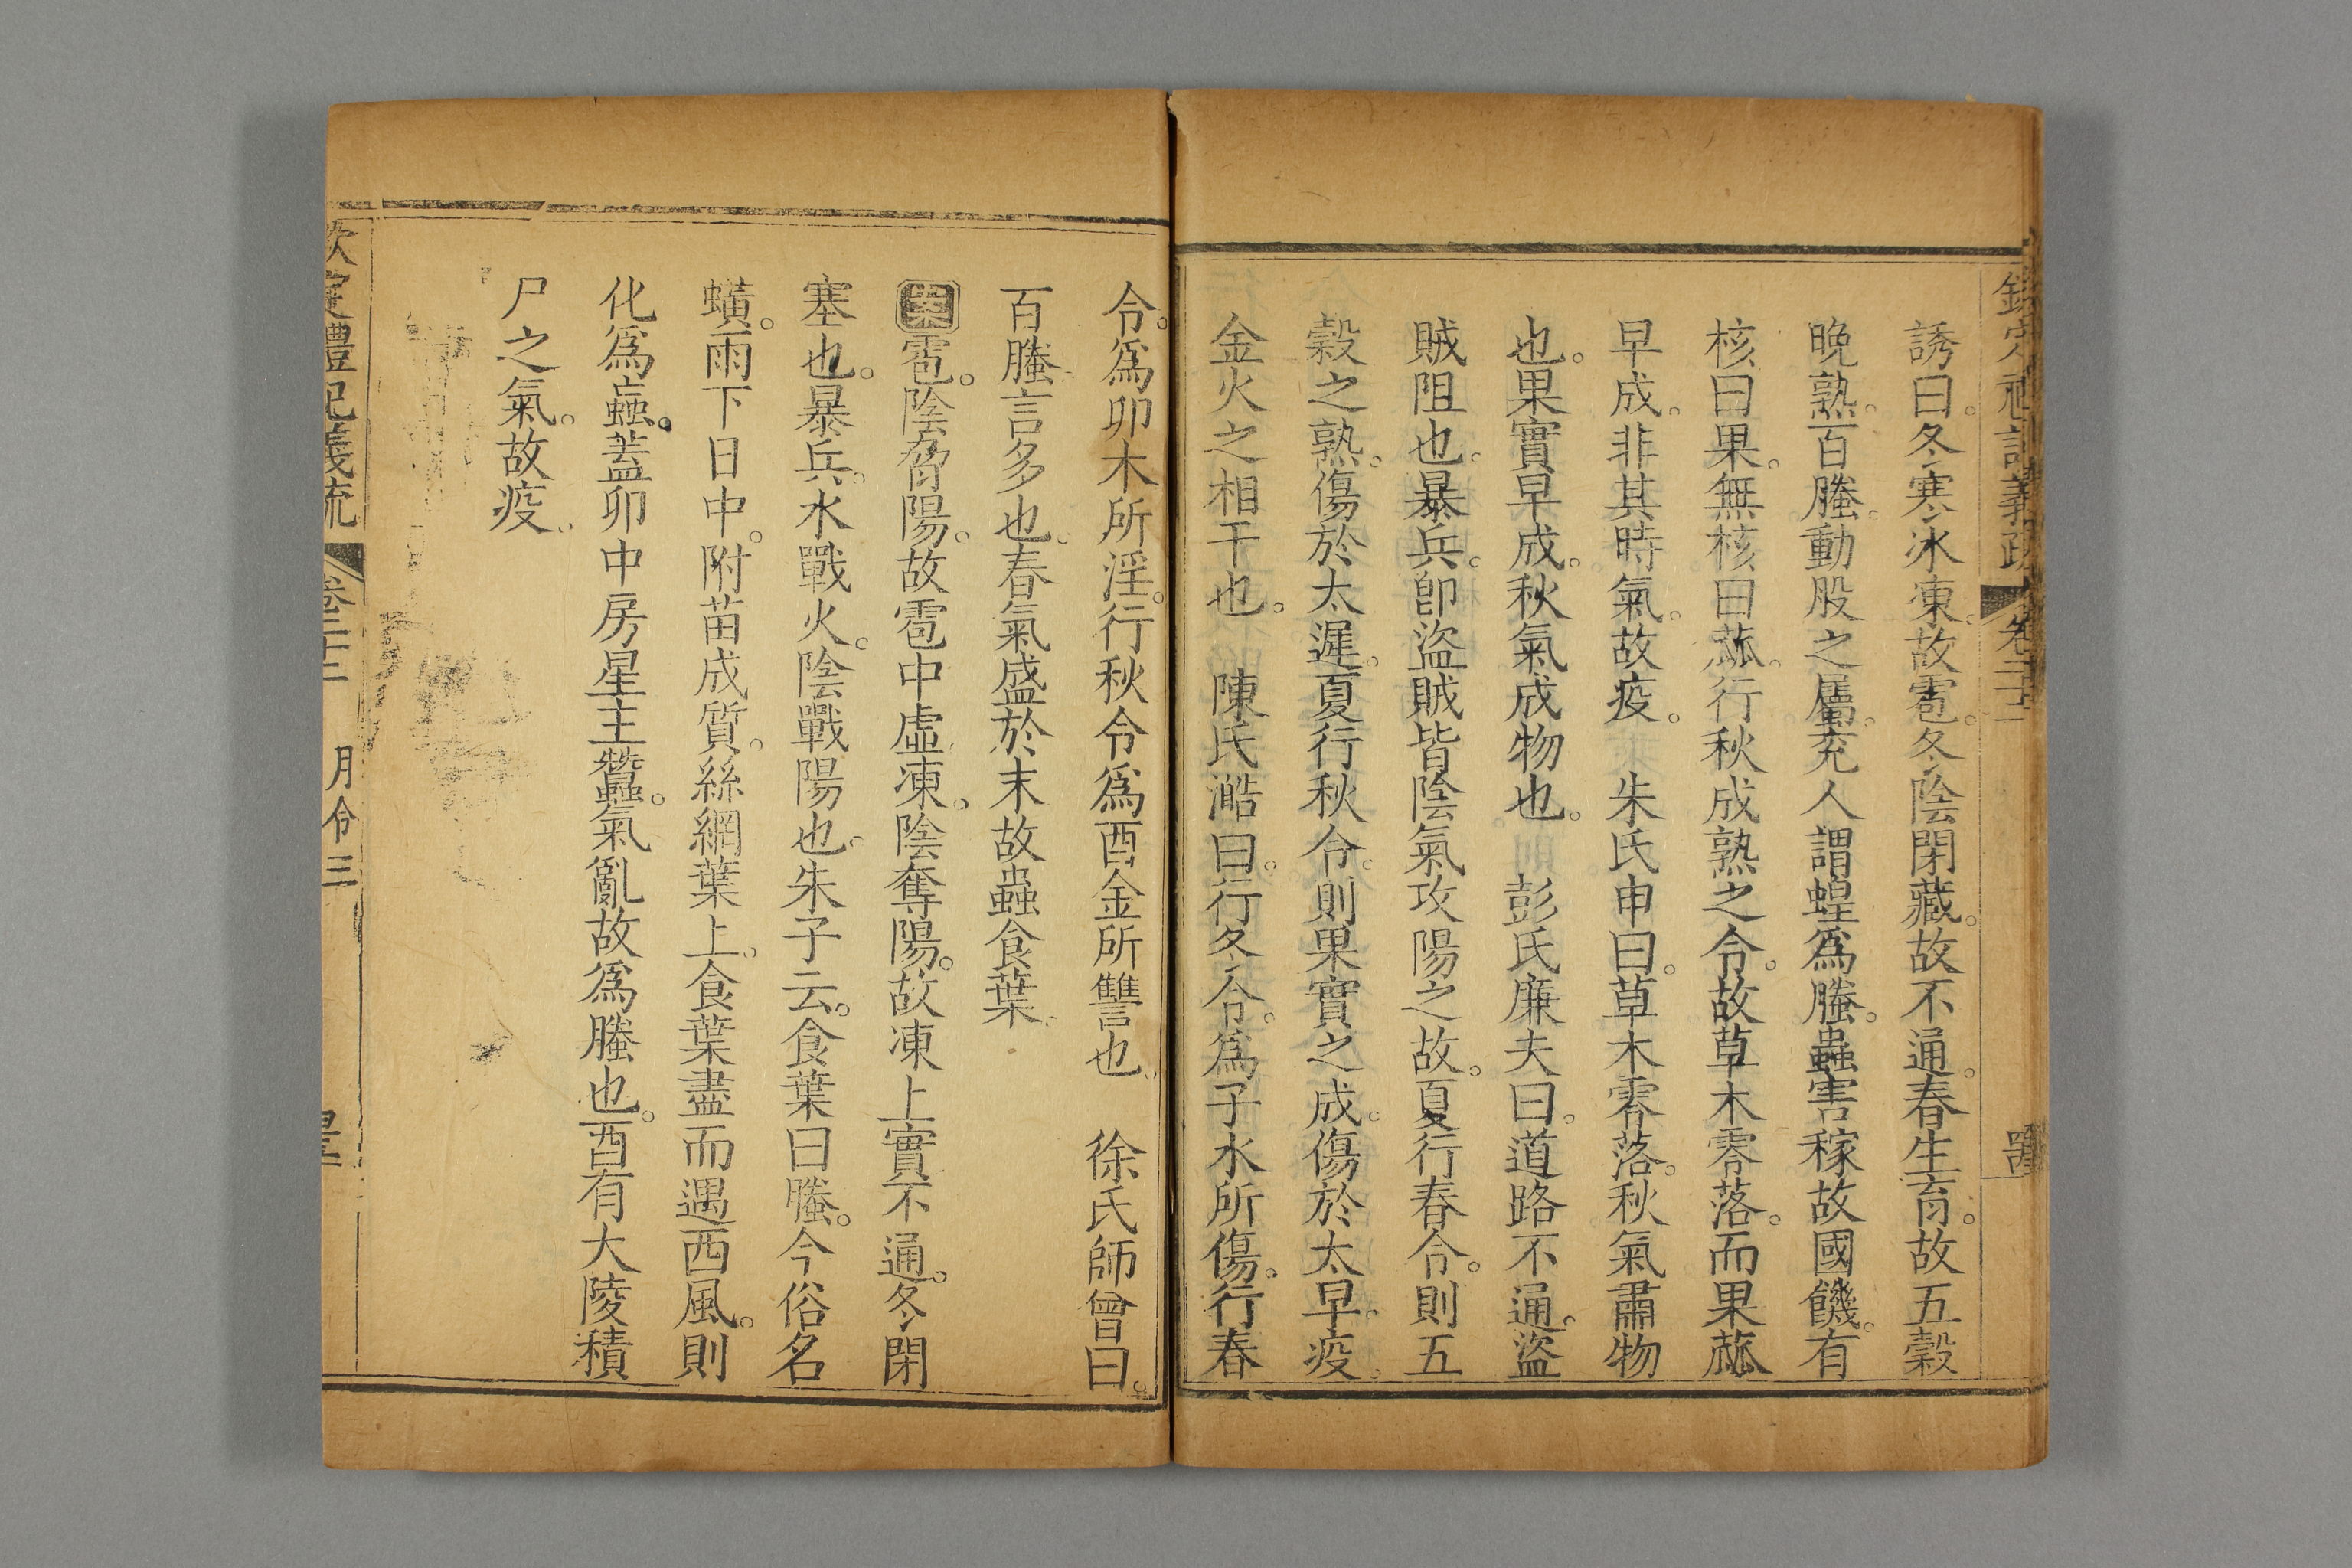 欽定禮記義疏 卷二十二 𦊆
誘曰。冬寒冰凍。故雹。冬陰閉藏。故不通。春生育。故五穀
晚熟。百螣。動股之屬。兗人謂蝗爲螣。蟲害稼故國饑。有
核曰果。無核曰蓏。行秋成熟之令。故草木零落。而果蓏
早成。非其時氣。故疫。 朱氏申曰。草木零落。秋氣肅物
也。果實早成。秋氣成物也。 彭氏廉夫曰。道路不通。盜
賊阻也。暴兵。卽盜賊皆陰氣攻陽之故。夏行春令。則五
穀之熟。傷於太遲。夏行秋令。則果實之成。傷於太早。疫。
金火之相干也。 陳氏澔曰。行冬令。爲子水所傷。行春
令。爲卯木所淫。行秋令爲酉金所讐也。 徐氏師曾曰。
百螣。言多也。春氣盛於末故蟲食葉。
案雹。陰脅陽。故雹中虛凍。陰奪陽。故凍上實不通。冬閉
塞也。暴兵。水戰火。陰戰陽也。朱子云。食葉曰螣。今俗名
蟥。雨下日中。附苗成質。絲網葉上。食葉盡而遇西風。則
化爲蝱。蓋卯中房星主蠶。氣亂故爲螣也。酉有大陵積
尸之氣。故疫。
欽定禮記義疏 卷二十二 月令三